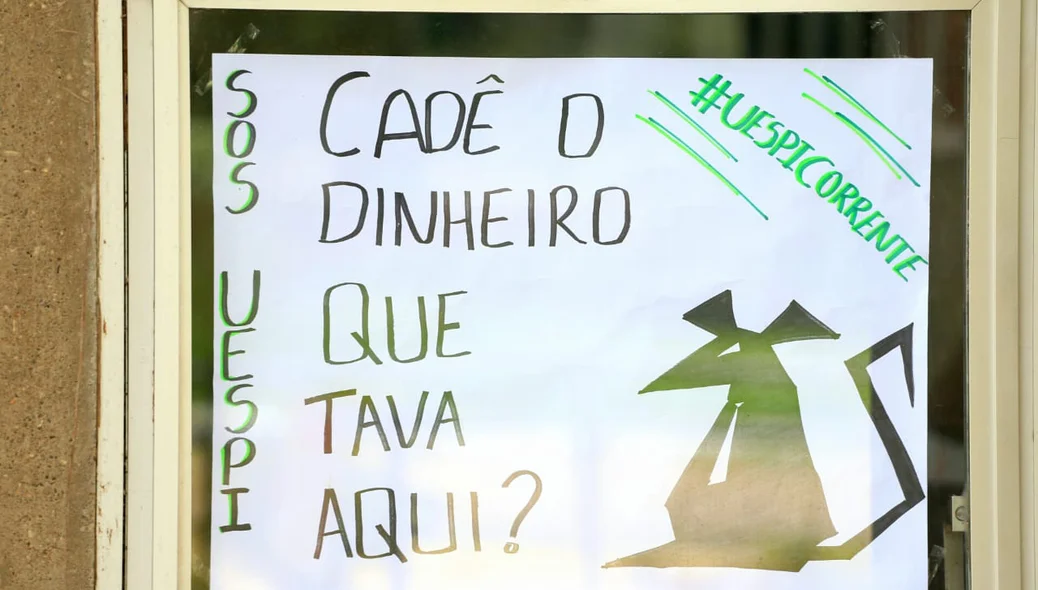 SOS UESPI
CADÊ O
DINHEIRO
QUE
TAVA
AQUI?
#UESPICORRENTE